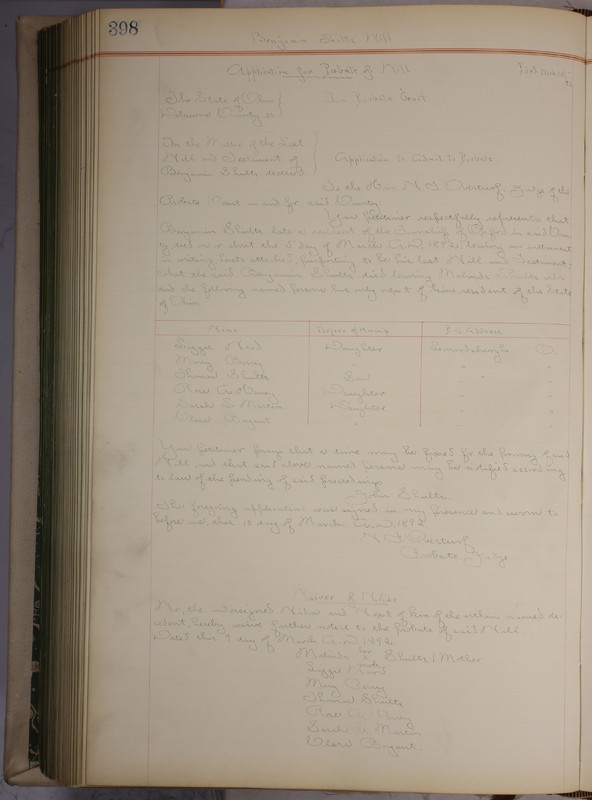 398
Benjamin Shults Will
Application for Probate of Will
The State of Ohio
Delaware County ss
In Probate Court
In the Matter of the Last
Will and Testament of
Benjamin Shults deceased
Application to Admit to Probate
To the Hon. Judge of the
Probate Court in and for said County
Your petitioner respectfully represents that
Benjamin Shults late a resident of the Township of Oxford in said Coun
ty died on or about the 5 day of March A.D. 1892, leaving an instrument
in writing, hereto attached, purporting to be his last Will and Testament;
that the said Benjamin Shults died leaving Malinda Shults
and the following named persons his only next of kin resident of the State
of Ohio
Name Degree of Kinship P.O. Address
Daughter O.
Mary Perry " "
Shults Son "
Daughter "
Sarah Martin Daughter "
Bryant " "
Your petitioner prays that a time may be fixed for the proving of said
Will and that said above named persons may be notified according
to law of the pending of said proceedings
John Shults
The foregoing application was signed in my presence and sworn to
before me, this 10 day of March A.D. 1892
Probate Judge
Waiver of Notice
We, the undersigned Widow and Next of kin of the within named de-
cedent, hereby waive further notice to the probate of said Will
Dated this 9 day of March A.D. 1892
Malinda her x mark Shults, Mother
Mary Perry
Shults
Sarah Martin
Bryant.